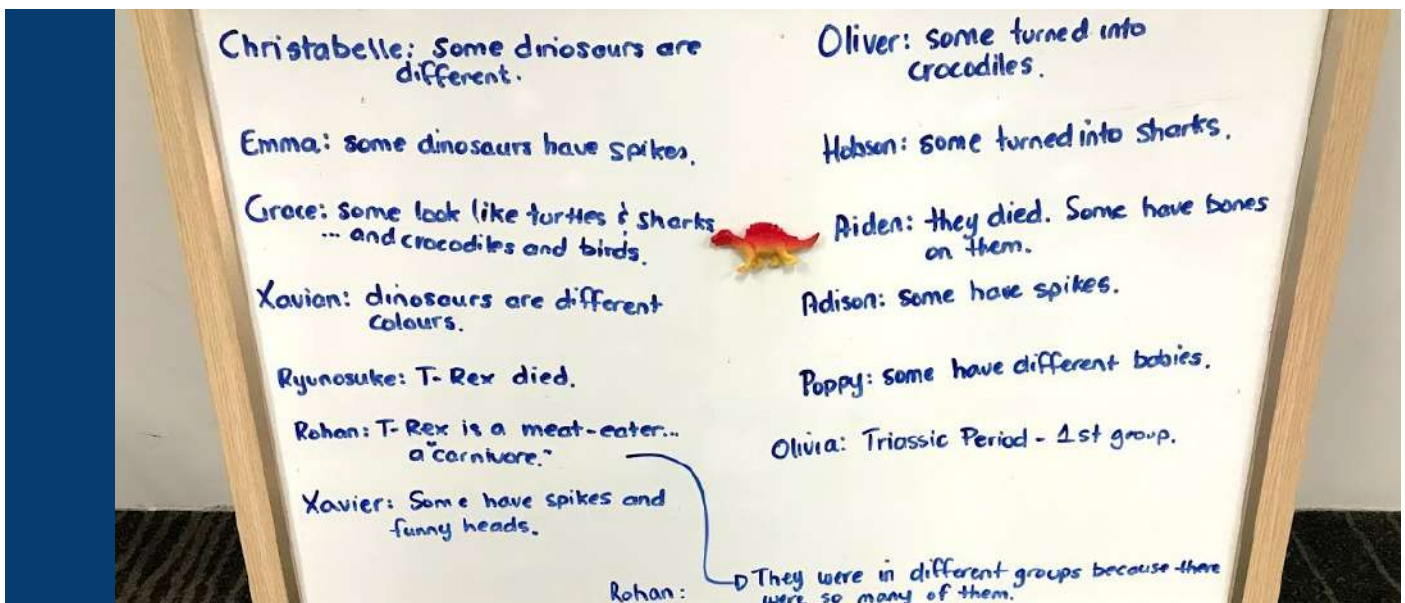 Christabelle: Some dinosaurs are
different.
Emma: some dinosaurs have spikes.
Grace: some look like turtles & sharks
... and crocodiles and birds.
Xavian: dinosaurs are different
colours.
Ryunosuke: T-Rex died.
Rohan: T-Rex is a meat-eater...
a "carnivore."
Xavier: Some have spikes and
funny heads.
Oliver: some turned into
crocodiles.
Hobson: some turned into sharks.
Aiden: they died. Some have bones
on them.
Adison: some have spikes.
Poppy: some have different babies.
Olivia: Triassic Period - 1st group.
Rohan: They were in different groups because there
were so many of them.